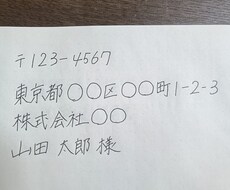 〒123-4567
東京都○○区○○町1-2-3
株式会社○○
山田 太郎 様